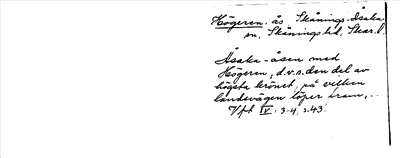 Högeren. ås Skånings-Åsaka
sn, Skånings hd, Skar. l.
Åsaka-åsen med
Högeren, d.v.s. den del av
högsta krönet, på vilken
landsvägen löper fram,..
Vft IV: 3-4, s. 43.